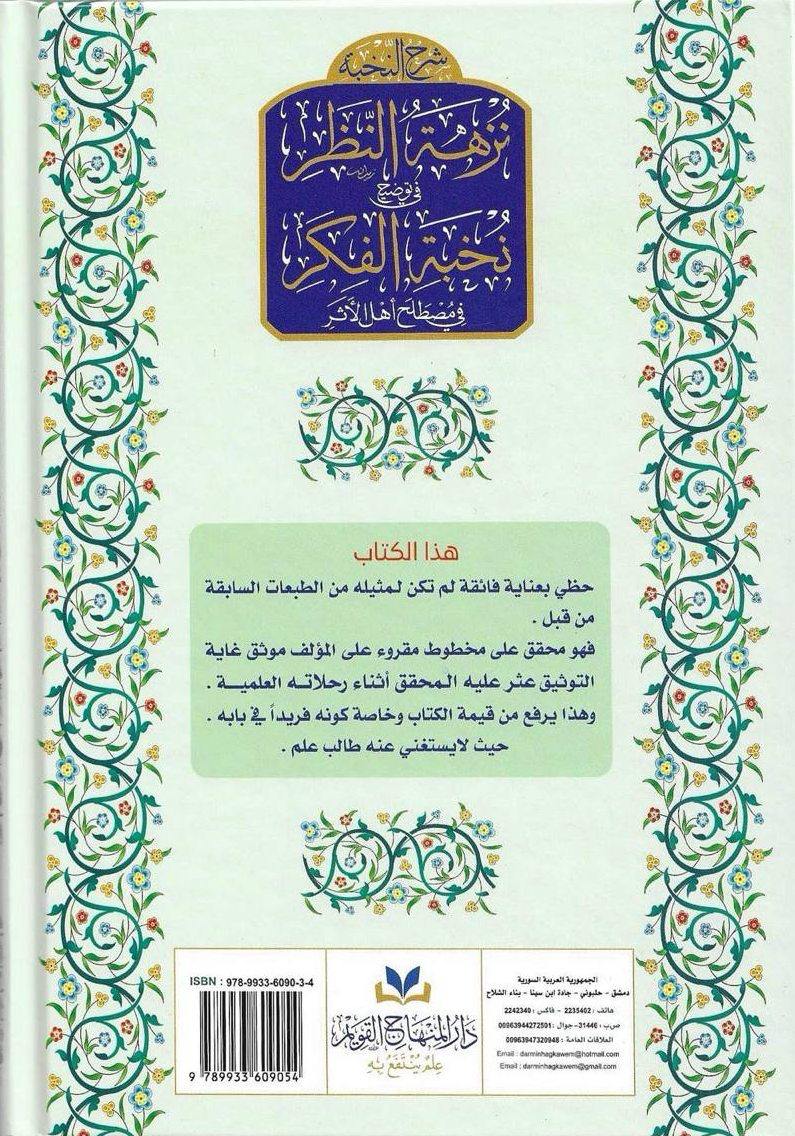 شرح النخبة
نزهة النظر
في توضيح
نخبة الفكر
في مصطلح أهل الأثر
هذا الكتاب
حظي بعناية فائقة لم تكن لمثيله من الطبعات السابقة
من قبل .
فهو محقق على مخطوط مقروء على المؤلف موثق غاية
التوثيق عثر عليه المحقق أثناء رحلاته العلمية .
وهذا يرفع من قيمة الكتاب وخاصة كونه فريداً في بابه .
حيث لايستغني عنه طالب علم .
الجمهورية العربية السورية
دمشق - حلبوني - جادة ابن سينا - بناء الشلاح
هاتف : 2235402 - فاكس : 2242340
ص.ب : 31446- جوال : 00963944272501
العلاقات العامة : 00963947320948
Email : darminhagkawem@hotmail.com
Email : darminhagkawem@gmail.com
دار المنهاج القويم
علم ينتفع به
ISBN : 978-9933-6090-3-4
9 789933 609054